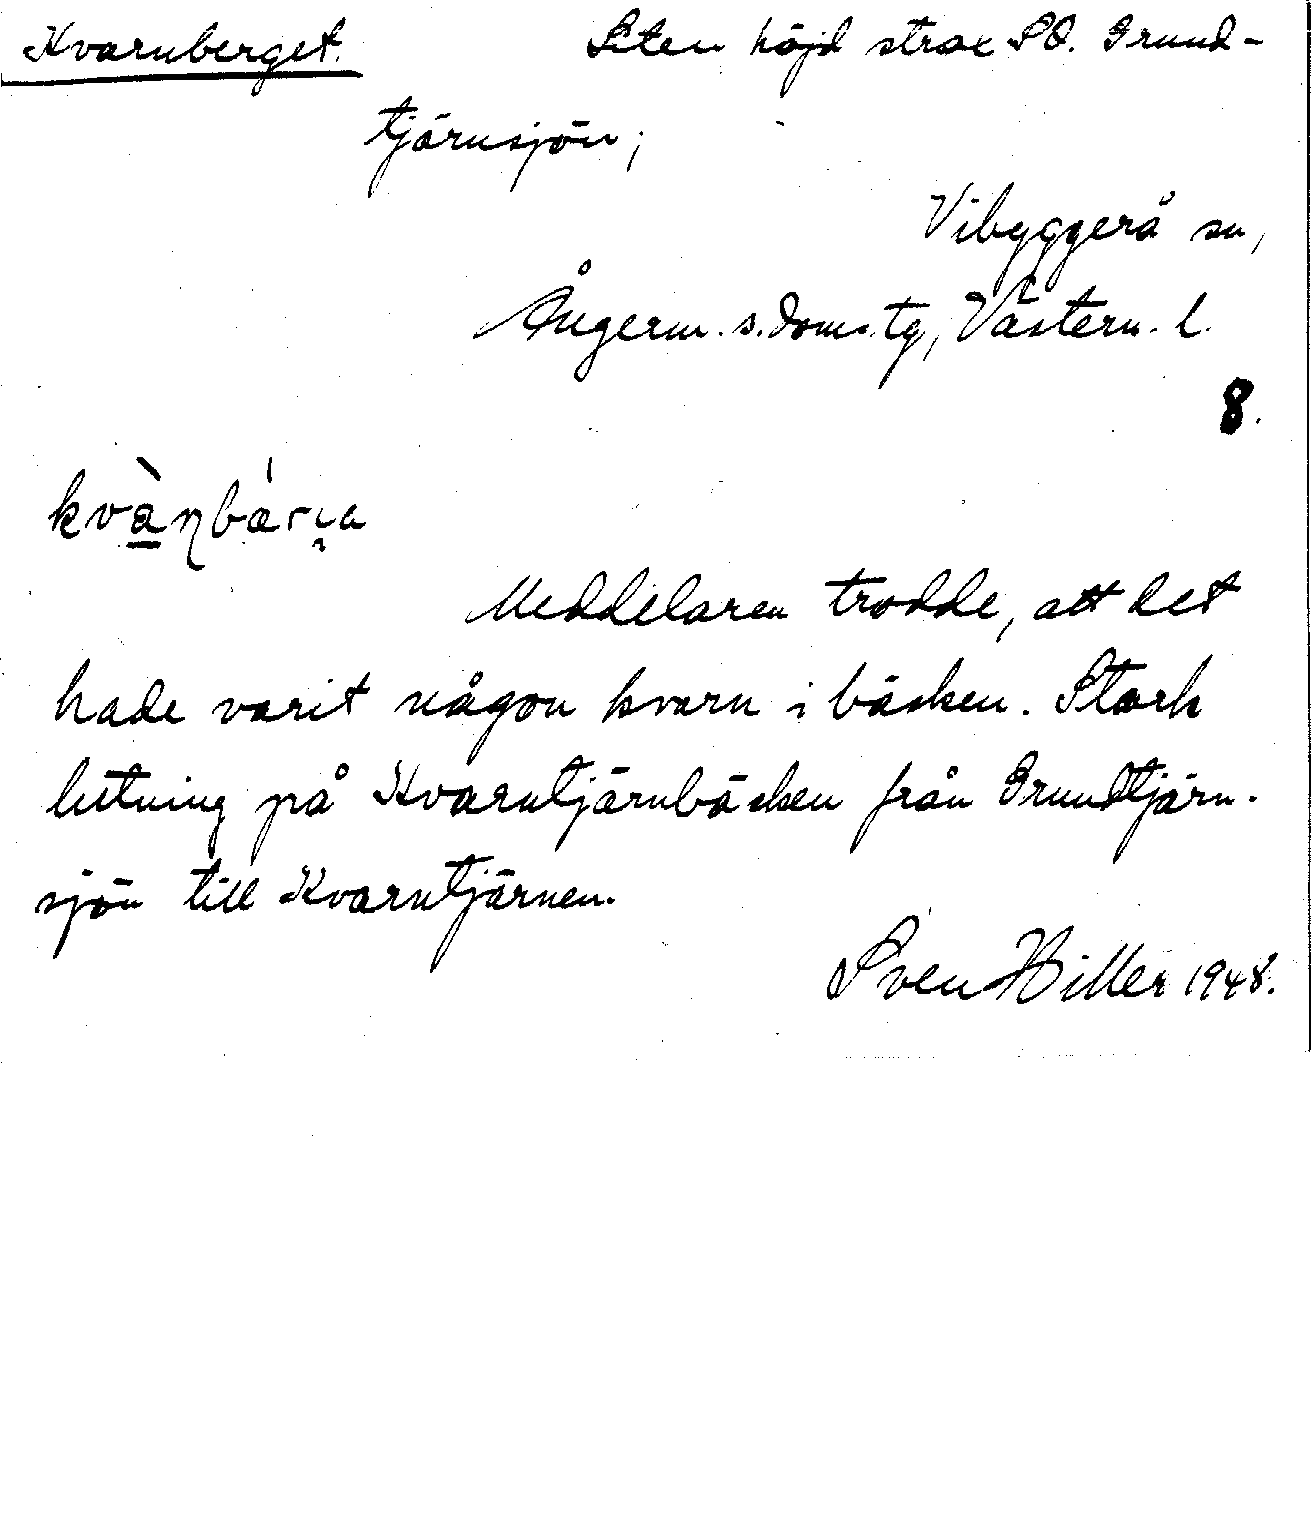 Kvarnberget. Liten höjd strax SO. Grund-
tjärnsjön;
Vibyggerå sn,
Ångerm. s. doms. tg, Västern. l.
8.
kvàɳbárɪ̯a
Meddelaren trodde, att det
hade varit någon kvarn i bäcken. Stark
lutning på Kvarntjärnbäcken från Grundtjärn-
sjön till Kvarntjärnen.
Sven Hiller 1948.